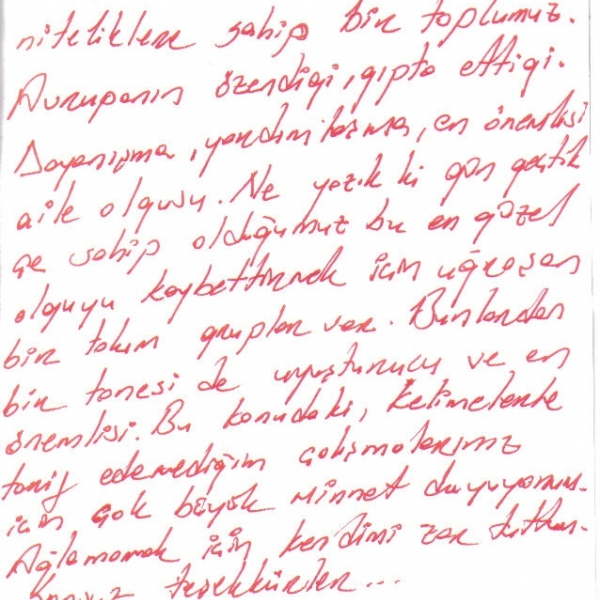 niteliklere sahip bir toplumuz.
Avrupanın özendiği, gıpta ettiği.
Dayanışma, yardımlaşma, en önemlisi
aile olgusu. Ne yazık ki gün geçtik
çe sahip olduğumuz bu en güzel
olguyu kaybettirmek için uğraşan
bir takım gruplar var. Bunlardan
bir tanesi de uyuşturucu ve en
önemlisi. Bu konudaki, kelimelerle
tarif edemediğim çalışmalarınız
için çok büyük minnet duyuyorum.
Ağlamamak için kendimi zor
teşekkürler...